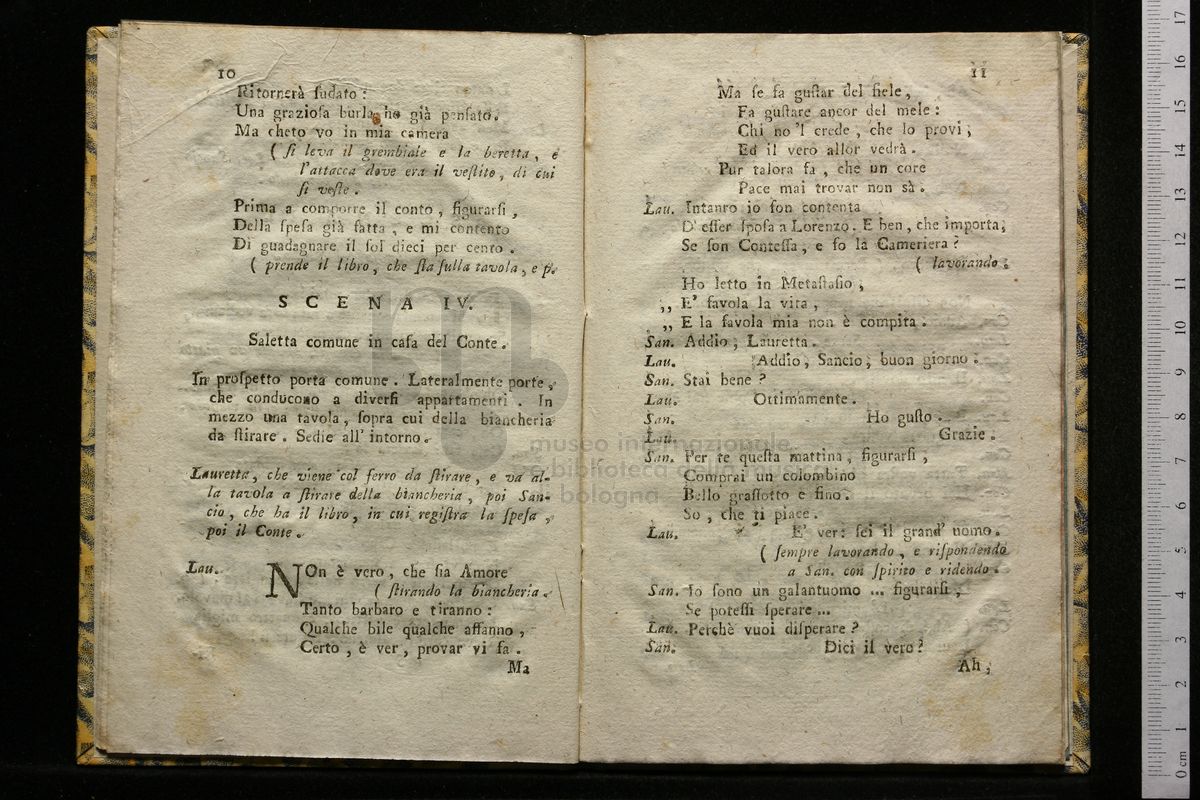 10
Ritornerà ſudato:
Una grazioſa burla ho già penſato.
Ma cheto vo in mia camera
( ſi leva il grembiale e la beretta, e
l'attacca dove era il veſtito, di cui
ſi veſte.
Prima a comporre il conto, figurarſi,
Della ſpeſa già fatta, e mi contento
Di guadagnare il ſol dieci per cento.
( prende il libro, che ſta ſulla tavola, e p.
SCENA IV.
Saletta comune in caſa del Conte.
In proſpetto porta comune. Lateralmente porte,
che conducono a diverſi appartamenti. In
mezzo una tavola, ſopra cui della biancheria
da ſtirare. Sedie all' intorno.
Lauretta, che viene col ferro da ſtirare, e va al-
la tavola a ſtirare della biancheria, poi San-
cio, che ha il libro, in cui regiſtra la ſpeſa,
poi il Conte.
Lau. NOn è vero, che ſia Amore
( ſtirando la biancheria.
Tanto barbaro e tiranno:
Qualche bile qualche affanno,
Certo, è ver, provar vi fa.
Ma
11
Ma ſe fa guſtar del fiele,
Fa guſtare ancor del mele:
Chi no 'l crede, che lo provi,
Ed il vero allor vedrà.
Pur talora fa, che un core
Pace mai trovar non sà.
Lau. Intanro io ſon contenta
D' eſſer ſpoſa a Lorenzo. E ben, che importa,
Se ſon Conteſſa, e fo la Cameriera?
( lavorando.
Ho letto in Metaſtaſio,
„ E' favola la vita,
„ E la favola mia non è compita.
San. Addio, Lauretta.
Lau. Addio, Sancio, buon giorno.
San. Stai bene?
Lau. Ottimamente.
San. Ho guſto.
Lau. Grazie.
San. Per te queſta mattina, figurarſi,
Comprai un colombino
Bello graſſotto e fino.
So, che ti piace.
Lau. E' ver: ſei il grand' uomo.
( ſempre lavorando, e riſpondendo
a San. con ſpirito e ridendo.
San. Io ſono un galantuomo ... figurarſi,
Se poteſſi ſperare ...
Lau. Perchè vuoi diſperare?
San. Dici il vero?
Ah,
museo internazionale
e biblioteca della musica
bologna
0 cm 1 2 3 4 5 6 7 8 9 10 11 12 13 14 15 16 17